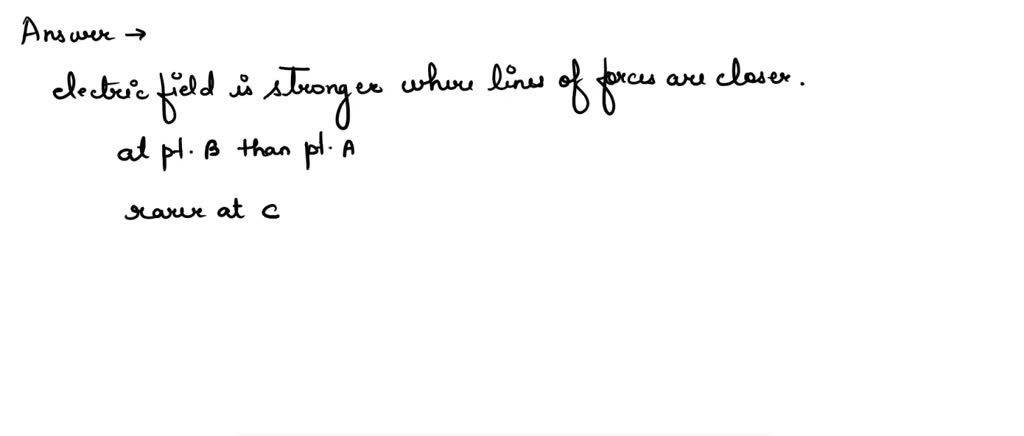 Answer →
electric field is stronger where lines of forces are closer.
at pt. B than pt. A
rarer at C